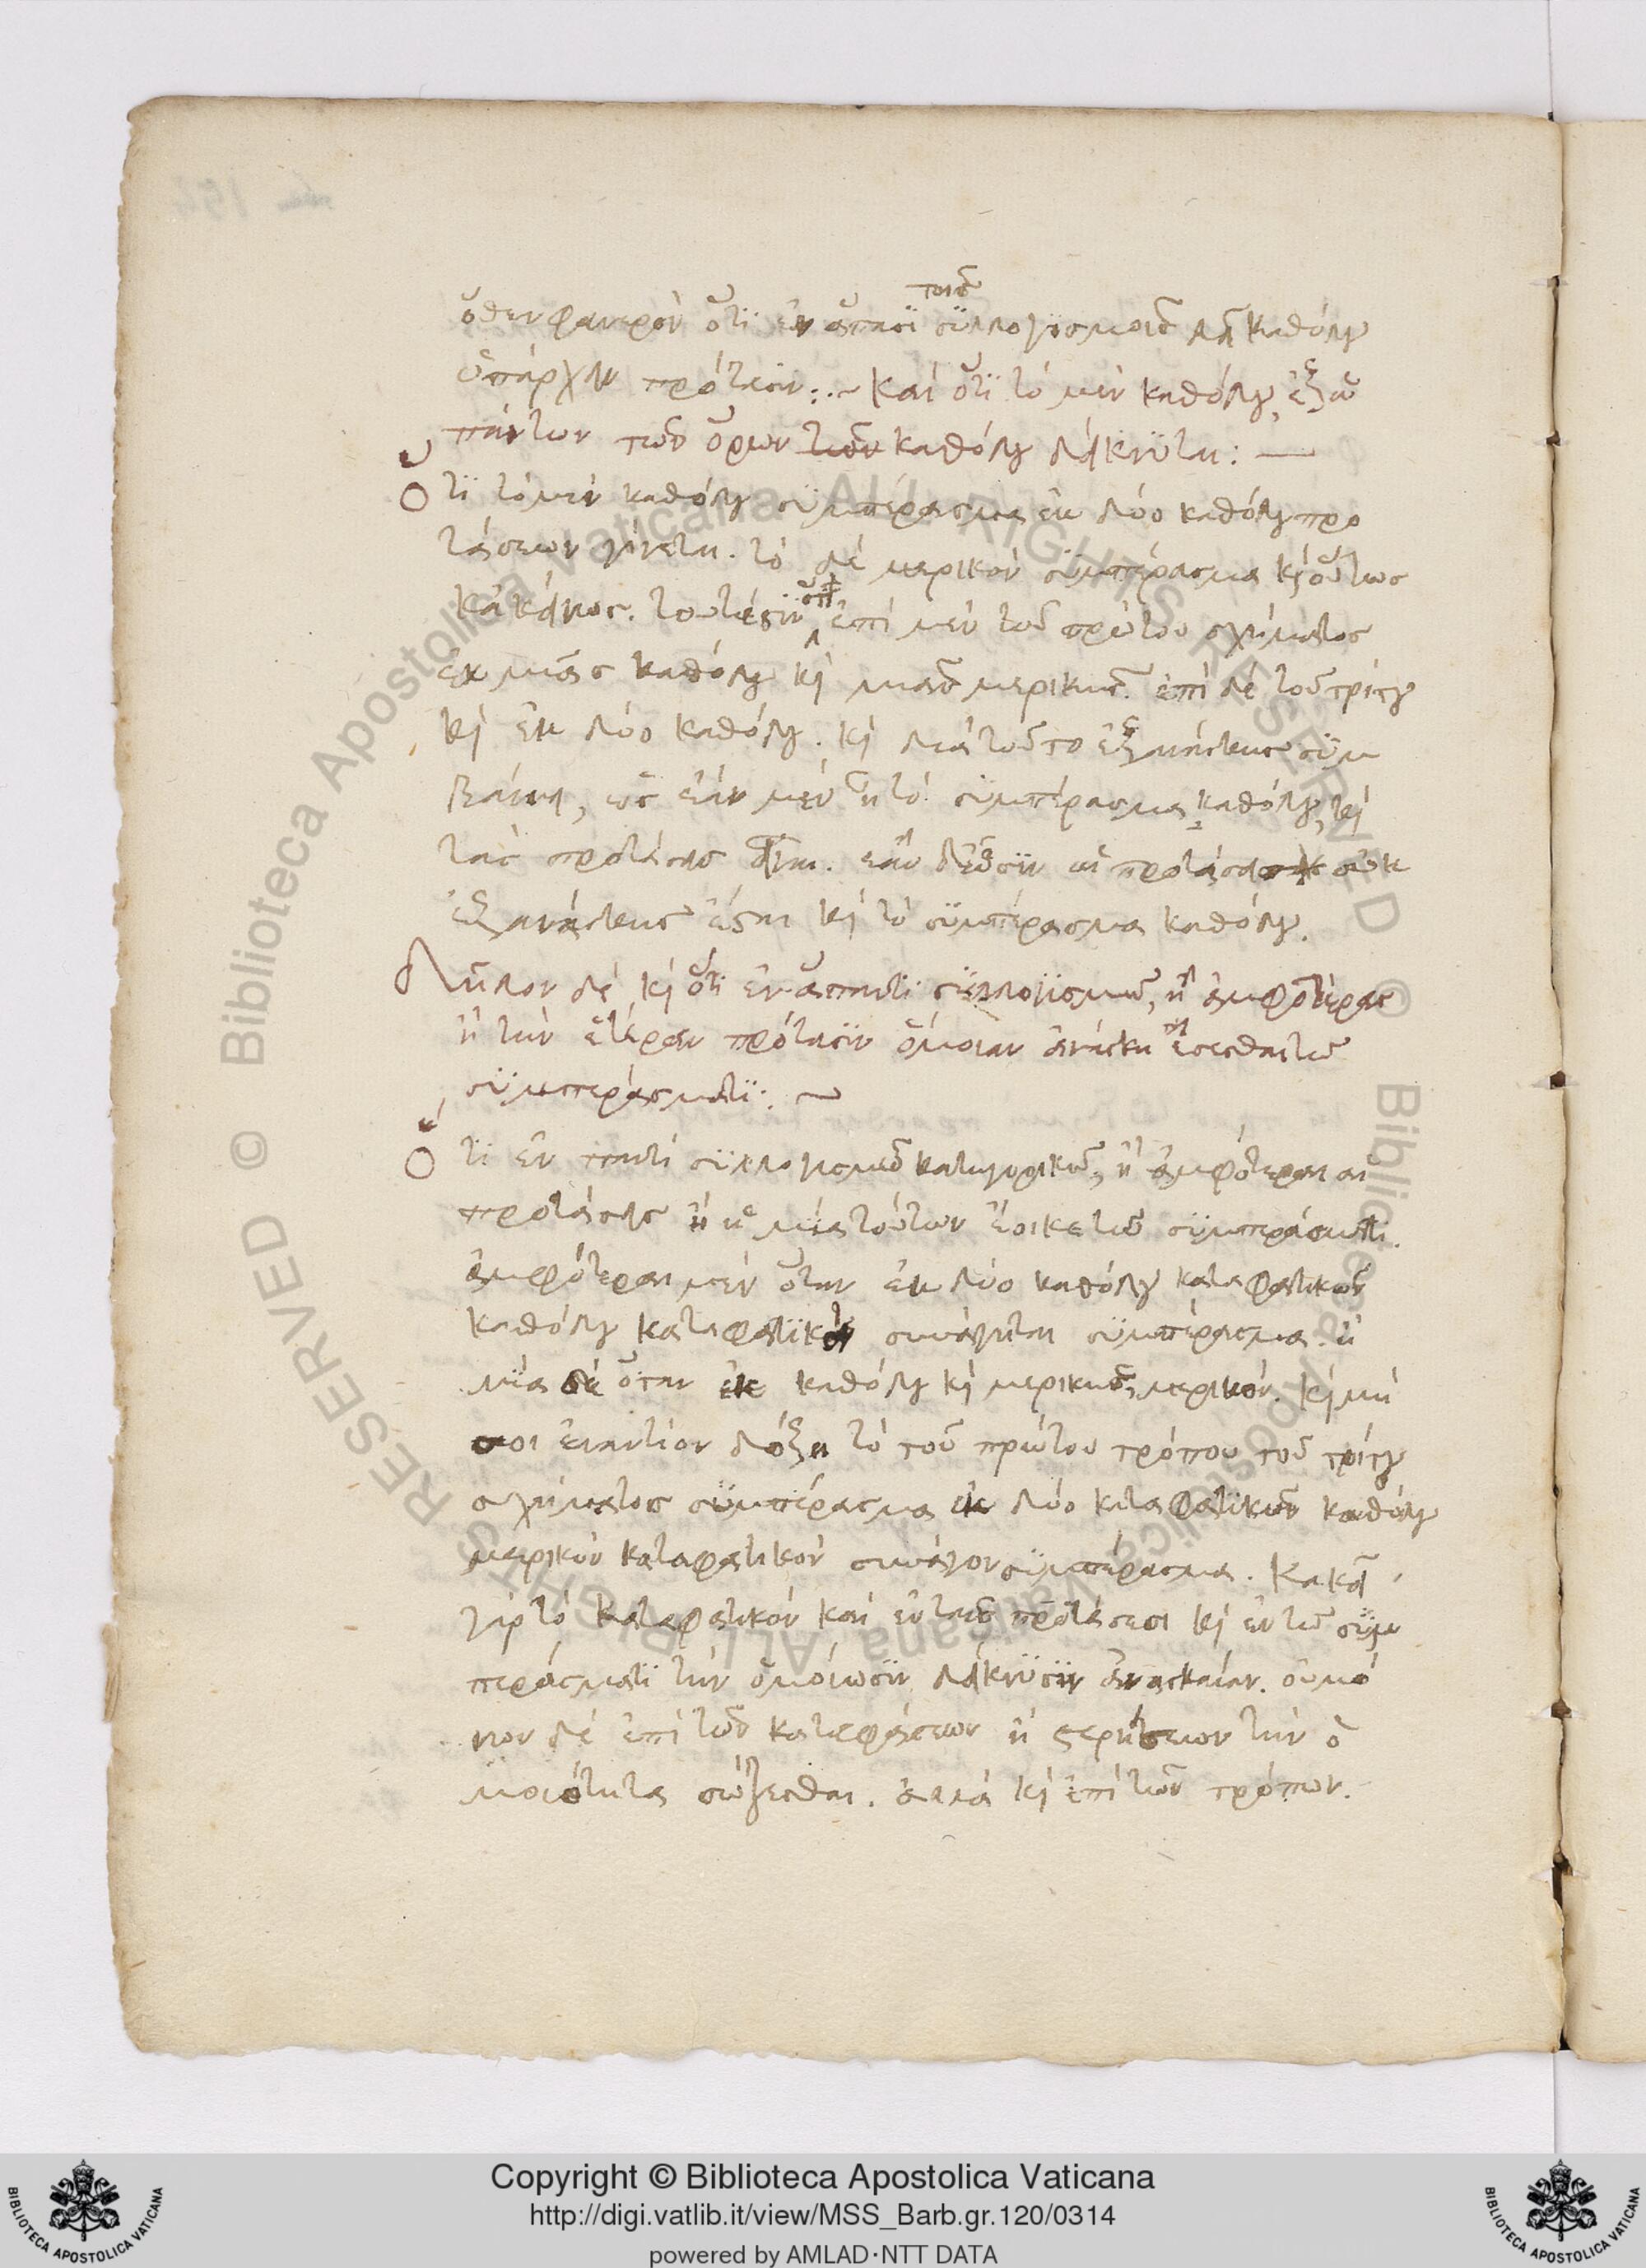 ὅθεν φανερὸν ὅτι ἐν ἅπασι τοῖς συλλογισμοῖς δεῖ καθόλου
ὑπάρχειν πρότασιν :.~ Καὶ ὅτι τὸ μὲν καθόλου, ἐξ
πάντων τῶν ὅρων τῶν καθόλου δείκνυται : —
Ὅτι τὸ μὲν καθόλου συμπέρασμα ἐκ δύο καθόλου προ
τάσεων γίνεται. τὸ δὲ μερικὸν συμπέρασμα καὶ οὕτως
κἀκείνως. τουτέστιν ἐπὶ μὲν τοῦ πρώτου σχήματος
ἐκ μιᾶς καθόλου καὶ μιᾶς μερικῆς. ἐπὶ δὲ τοῦ τρίτου
καὶ ἐκ δύο καθόλου. καὶ διὰ τοῦτο ἐξ ἀνάγκης συμ
βαίνει, ὡς ἐὰν μὲν ᾖ τὸ συμπέρασμα καθόλου, καὶ
τὰς προτάσεις εἶναι. ἐὰν δὲ ὦσιν αἱ προτάσεις οὐκ
ἐξ ἀνάγκης ἔσται καὶ τὸ συμπέρασμα καθόλου.
Δῆλον δὲ καὶ ὅτι ἐν ἅπαντι συλλογισμῷ, ἢ ἀμφοτέρας
ἢ τὴν ἑτέραν πρότασιν ὁμοίαν ἀνάγκη ἔσεσθαι τῷ
συμπεράσματι : ~
Ὅτι ἐν παντὶ συλλογισμῷ κατηγορικῷ, ἢ ἀμφότεραι αἱ
προτάσεις ἢ ἡ μία τούτων ἔοικε τῷ συμπεράσματι.
ἀμφότεραι μὲν ὅταν ἐκ δύο καθόλου καταφατικῶν
καθόλου καταφατικὸν συνάγηται συμπέρασμα. ἡ
μία δὲ ὅταν ἐκ καθόλου καὶ μερικῆς, μερικόν. καὶ μή
σοι ἐναντίον δόξῃ τὸ τοῦ πρώτου τρόπου τοῦ τρίτου
σχήματος συμπέρασμα ἐκ δύο καταφατικῶν καθόλου
μερικὸν καταφατικὸν συνάγον συμπέρασμα. Κἀκεῖ
γὰρ τὸ καταφατικὸν καὶ ἐν ταῖς προτάσεσι καὶ ἐν τῷ συμ
περάσματι τὴν ὁμοίωσιν δείκνυσιν ἀναγκαίαν. οὐ μό
νον δὲ ἐπὶ τῶν καταφάσεων ἢ στερήσεων τὴν ὁ
μοιότητα σώζεσθαι. ἀλλὰ καὶ ἐπὶ τῶν τρόπων.
Copyright © Biblioteca Apostolica Vaticana
http://digi.vatlib.it/view/MSS_Barb.gr.120/0314
powered by AMLAD·NTT DATA